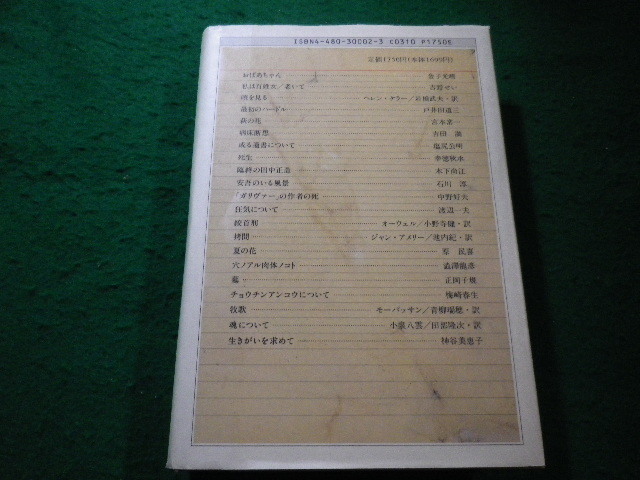 ISBN4-480-30002-3 C0310 P1750E
定価1750円(本体1699円)
おばあちゃん 金子光晴
私は百姓女/老いて 吉野せい
闇を見る ヘレン・ケラー/岩橋武夫・訳
最初のハードル 戸井田道三
萩の花 宮本常一
病床断想 吉田満
或る遺書について 塩尻公明
死生 幸徳秋水
臨終の田中正造 木下尚江
安吾のいる風景 石川淳
「ガリヴァー」の作者の死 中野好夫
狂気について 渡辺一夫
絞首刑 オーウェル/小野寺健・訳
拷問 ジャン・アメリー/池内紀・訳
夏の花 原民喜
穴ノアル肉体ノコト 澁澤龍彦
墓 正岡子規
チョウチンアンコウについて 梅崎春生
牧歌 モーパッサン/青柳瑞穂・訳
魂について 小泉八雲/田部隆次・訳
生きがいを求めて 神谷美恵子